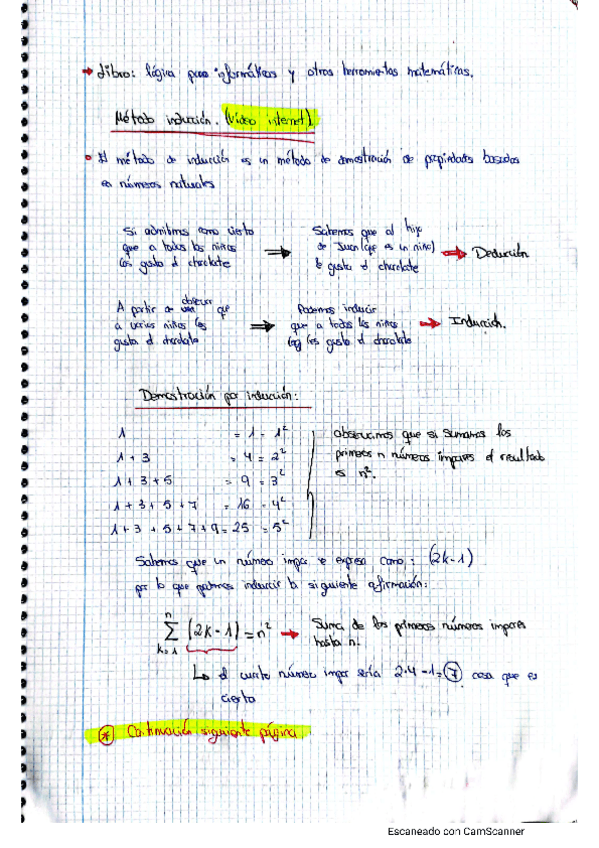 → Libro: lógica para informáticos y otras herramientas matemáticas.
Método inducción. (Vídeo internet).
• El método de inducción es un método de demostración de propiedades basadas
en números naturales
Si admitimos como cierto
que a todos los niños
les gusta el chocolate
⇒
Sabemos que al hijo
de Juan (que es un niño)
le gusta el chocolate
⇒ Deducción
A partir de observar que
a varios niños les
gusta el chocolate
⇒
Podemos inducir
que a todos los niños
les gusta el chocolate
⇒ Inducción.
Demostración por inducción:
1 = 1 = 1²
1 + 3 = 4 = 2²
1 + 3 + 5 = 9 = 3²
1 + 3 + 5 + 7 = 16 = 4²
1 + 3 + 5 + 7 + 9 = 25 = 5²
observamos que si sumamos los
primeros n números impares el resultado
es n².
Sabemos que un número impar se expresa como: (2k-1)
por lo que podemos inducir la siguiente afirmación:
n
∑ (2k-1) = n² → Suma de los primeros números impares
k=1
hasta n.
↳ el cuarto número impar sería 2·4-1=7 cosa que es
cierto
* Continuación siguiente página
Escaneado con CamScanner